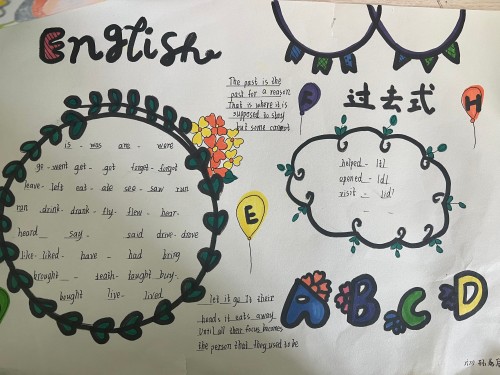 English
The past is the
past for a reason
That is where it is
supposed to stay
but some cannot
过去式
F
H
E
is - was are - were
go - went get - got forget - forgot
leave - left eat - ate see - saw run
ran drink - drank - fly - flew - hear -
heard say - said drive - drove
like - liked - have - had bring
brought - teach - taught buy -
bought live - lived
helped - |t|
opened - |d|
visit - |id|
let it go In their
heads it eats away
Until all their focus becomes
the person that they used to be
A B C D